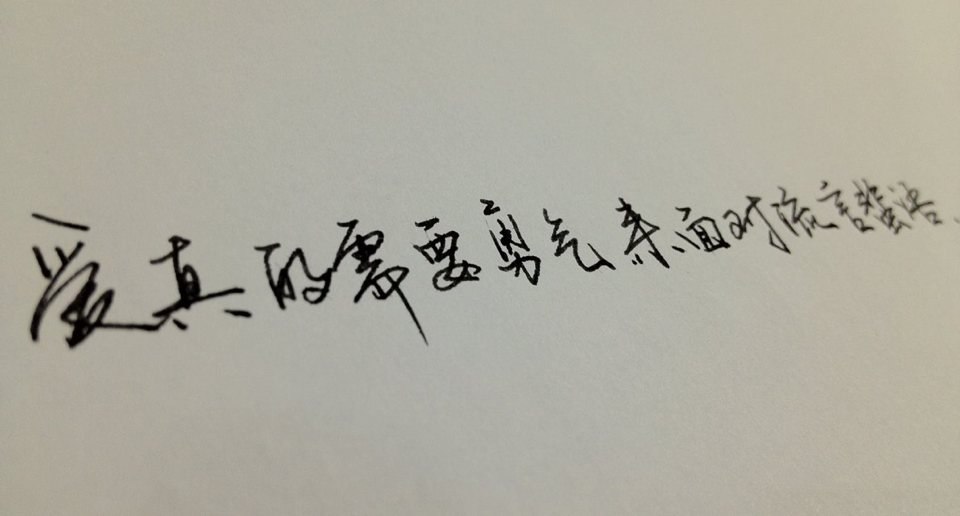 爱真的需要勇气来面对流言蜚语.